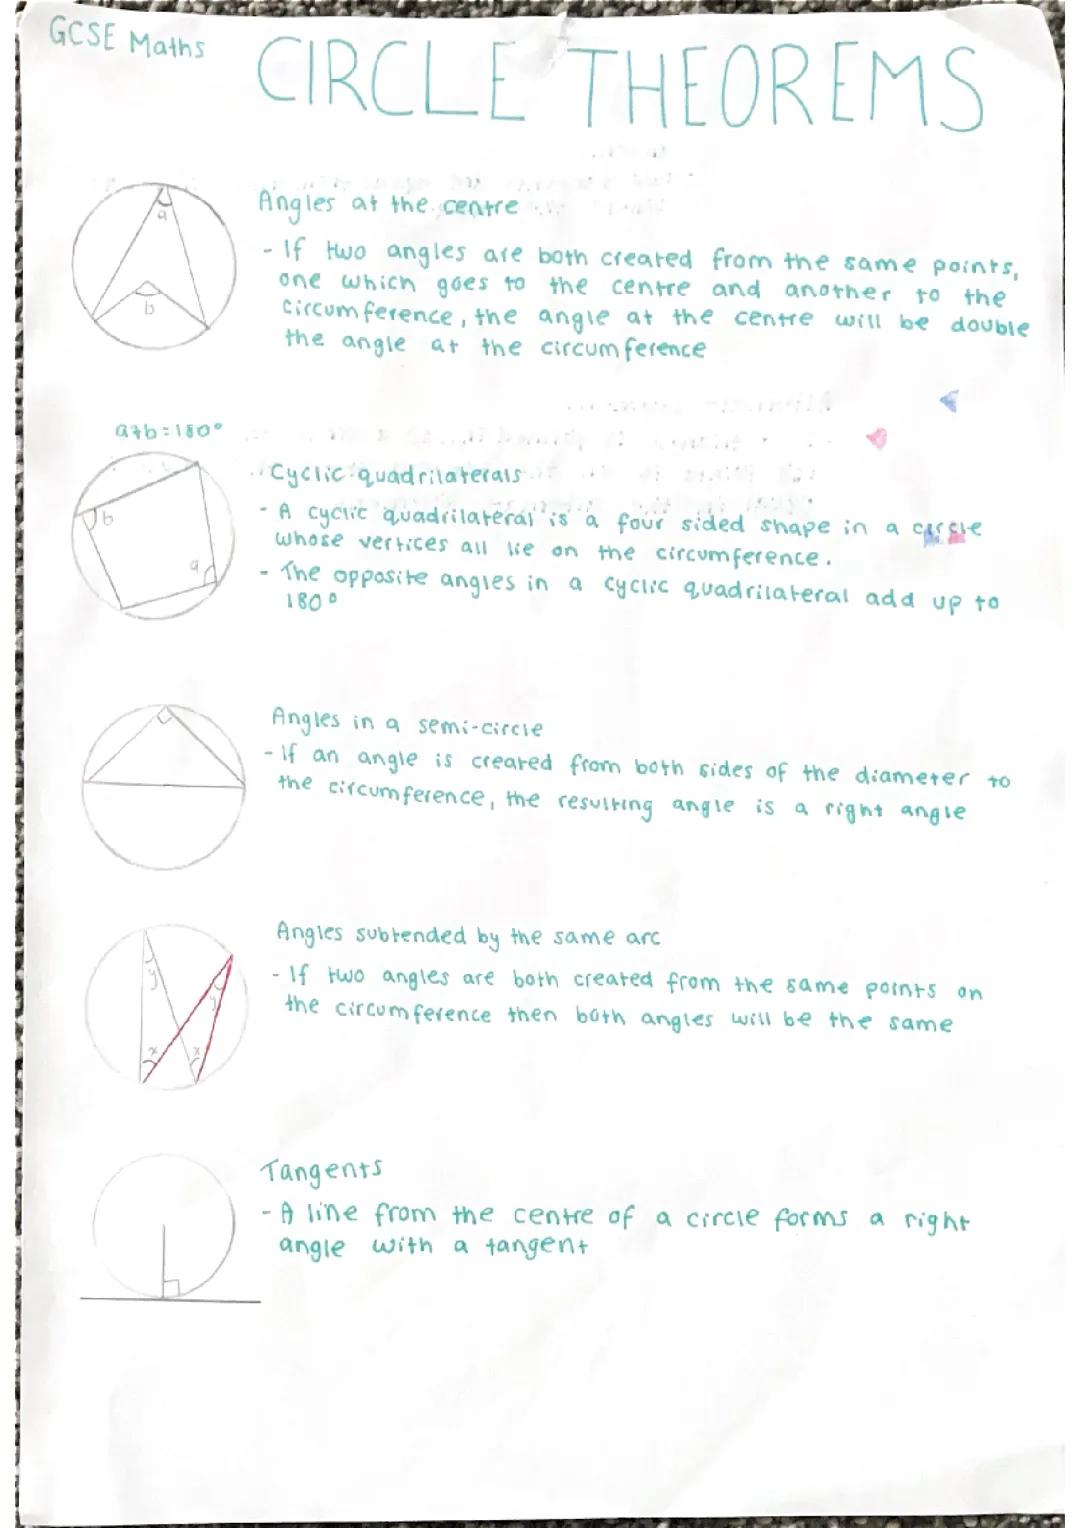 GCSE Maths
CIRCLE THEOREMS
Angles at the centre
- If two angles are both created from the same points,
one which goes to the centre and another to the
circumference, the angle at the centre will be double
the angle at the circumference
a
b
a+b=180°
Cyclic quadrilaterals
- A cyclic quadrilateral is a four sided shape in a circle
whose vertices all lie on the circumference.
- The opposite angles in a cyclic quadrilateral add up to
180°
b
a
Angles in a semi-circle
- If an angle is created from both sides of the diameter to
the circumference, the resulting angle is a right angle
Angles subtended by the same arc
- If two angles are both created from the same points on
the circumference then both angles will be the same
y
y
x
x
Tangents
- A line from the centre of a circle forms a right
angle with a tangent